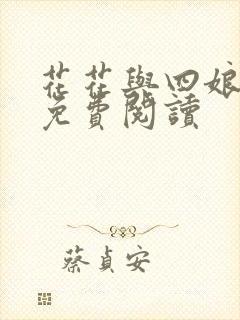 花花與四娘
免費閱讀
蔡貞安